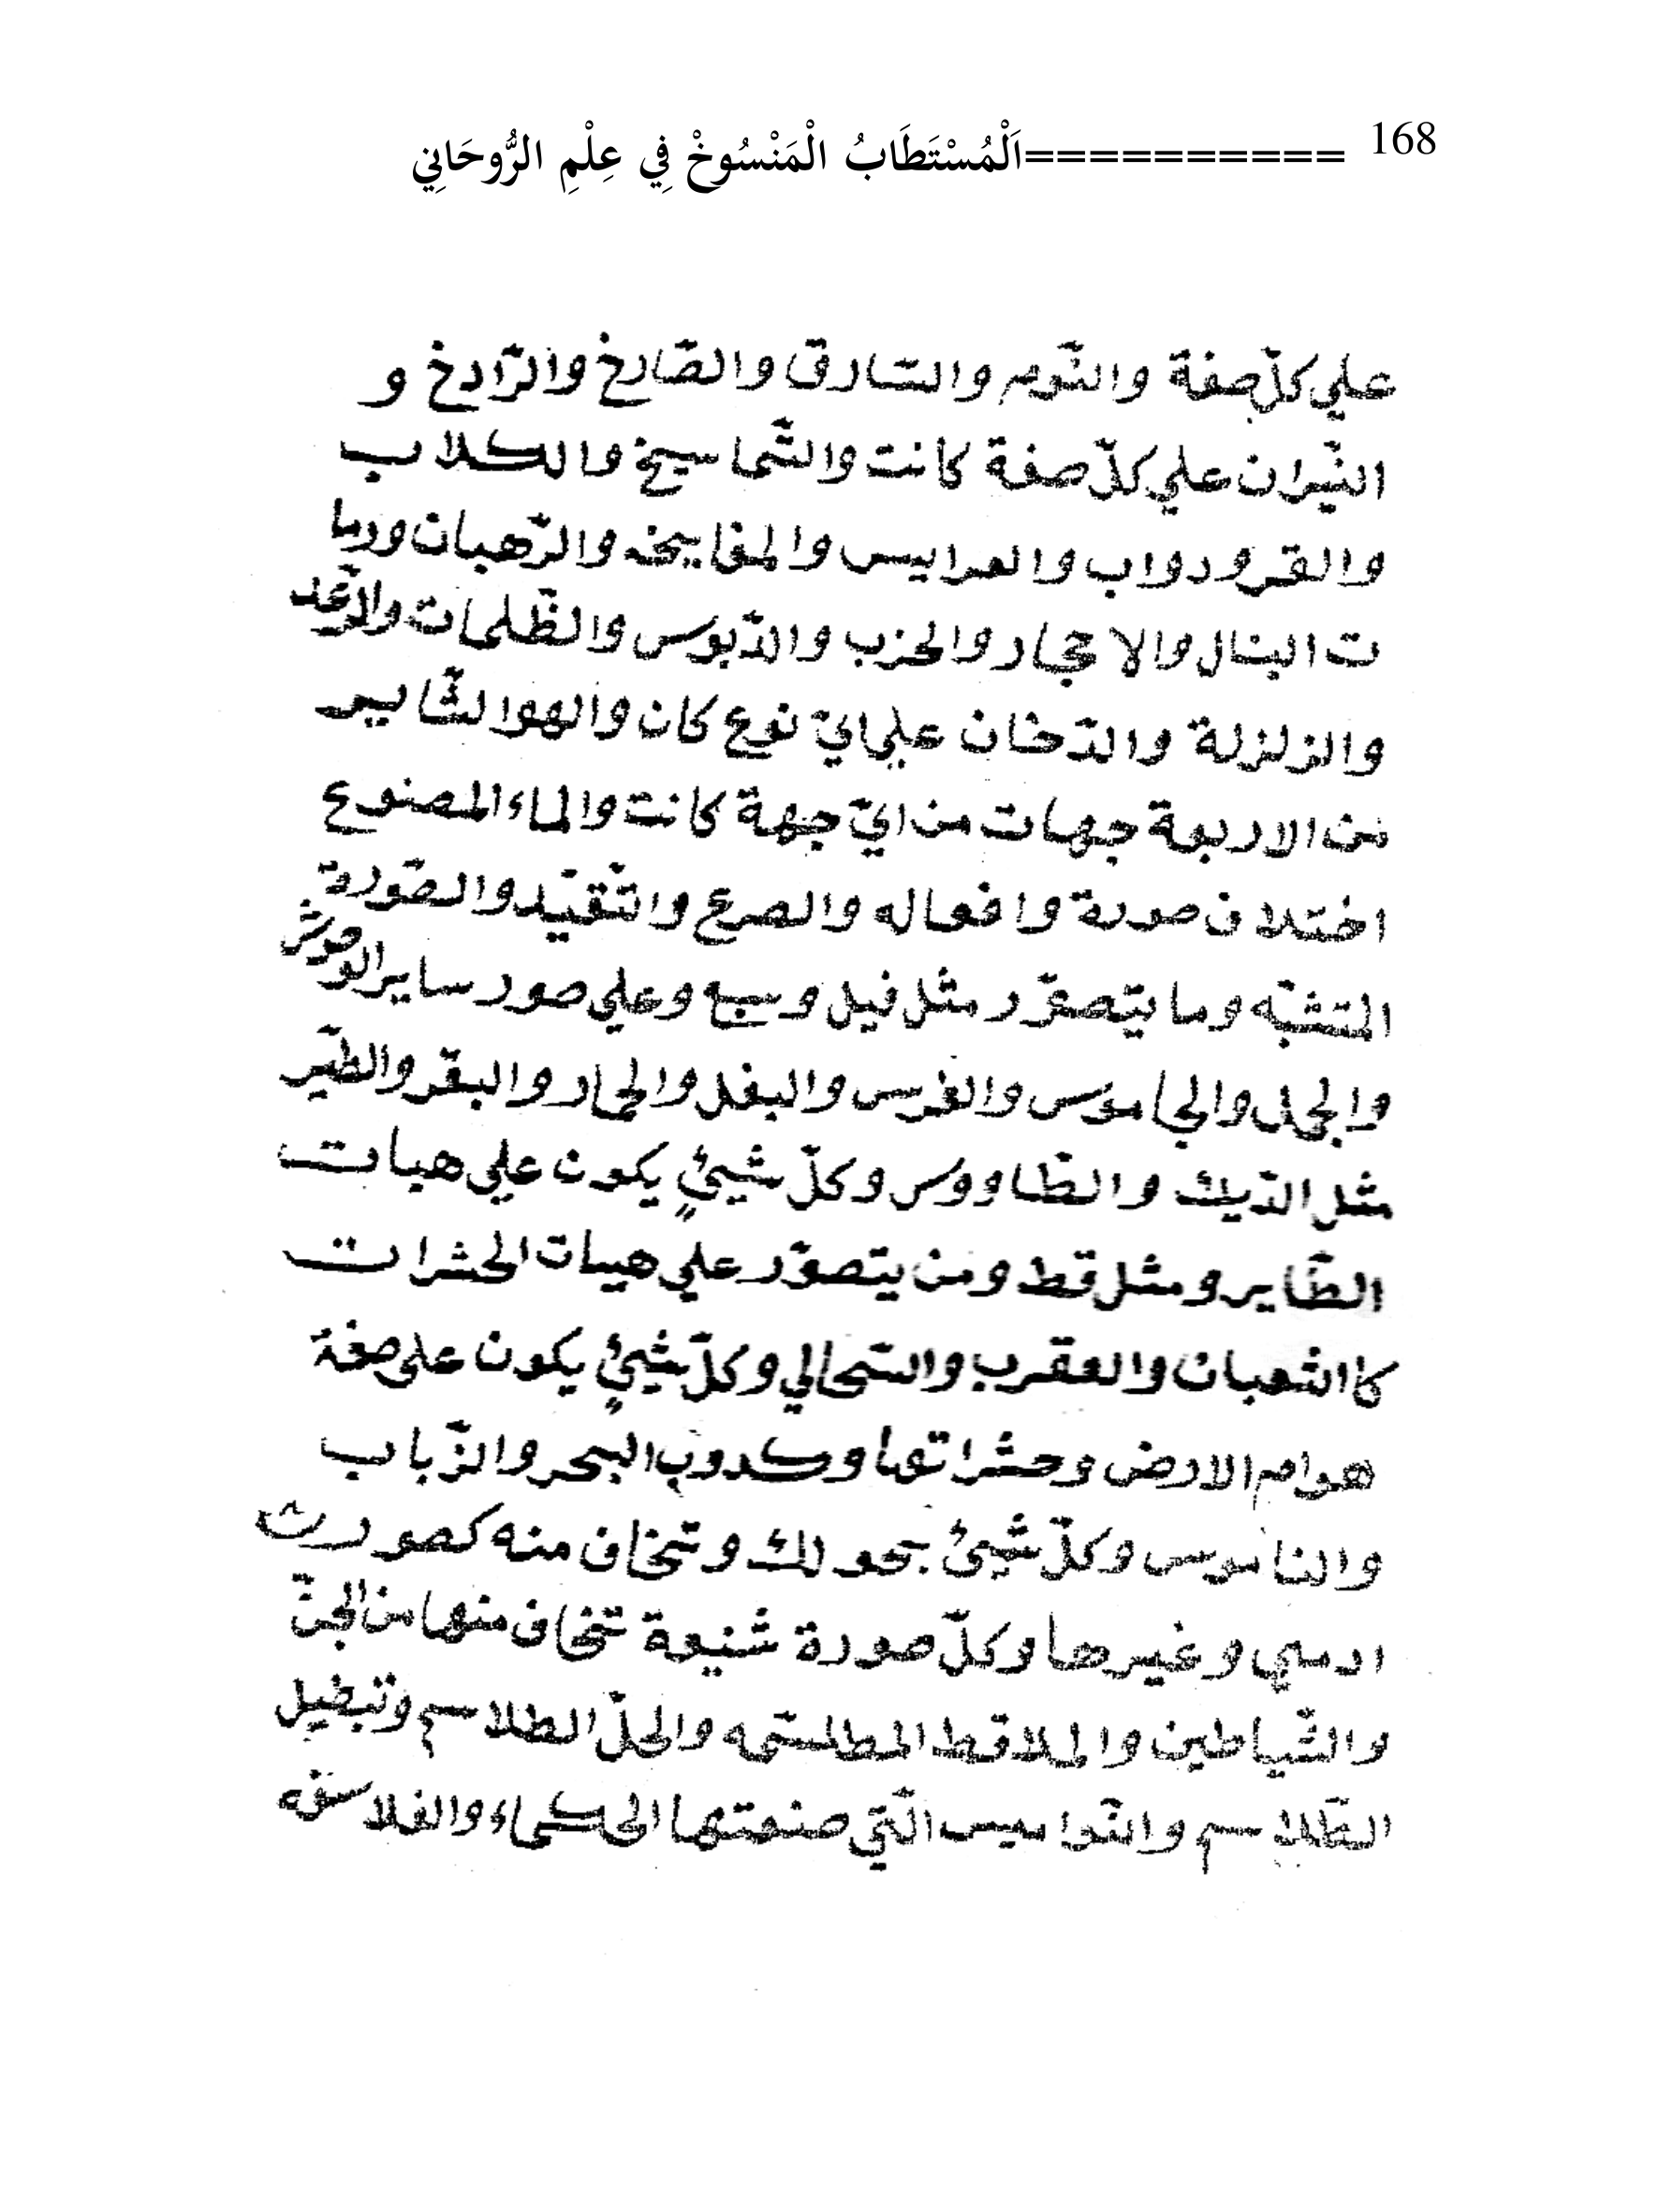 168 ==========اَلْمُسْتَطَابُ الْمَنْسُوخْ فِي عِلْمِ الرُّوحَانِي
علي كلّ صفة والنّوم والسّارق والصّارخ والرّادخ و
النّيران علي كلّ صفة كانت والشّماسيخ والكلاب
والقرودواب والعرابيس والمفاييخه والرّهبان وربما
ت البنال والاحجار والحزب والدّبوس والظّلمات والرّعد
والزلزلة والدّخان علي ايّ نوع كان والهوا لثّايير
من الاربعة جهات من ايّ جهة كانت والماء المصنوع
اختلاف صورة وافعاله والصرع والتّقيّد والصّورة
المتشبّه وما يتصوّر مثل فيل وسبع وعلي صور ساير الوحوش
والجمل والجاموس والفرس والبغل والحمار والبقر والطّير
مثل الدّيك والطّاووس وكلّ شيئٍ يكون علي هيات
الطّاير ومثل قط ومن يتصوّر علي هيات الحشرات
كا الثعبان والعقرب والسّحالي وكلّ شيئٍ يكون علي صفة
هوام الارض وحشراتها وكدوب البحر والزّباب
والناموس وكلّ شيئ بحولك وتخاف منه كصورت
ادمي وغيرها وكلّ صورة شنيعة تخاف منها من الجنّ
والشّياطين والملاقط المطلسمّه والحلّ الطلاسم وتبطيل
الطّلاسم والنّواميس الّتي صنعتها الحكماء والفلاسفه